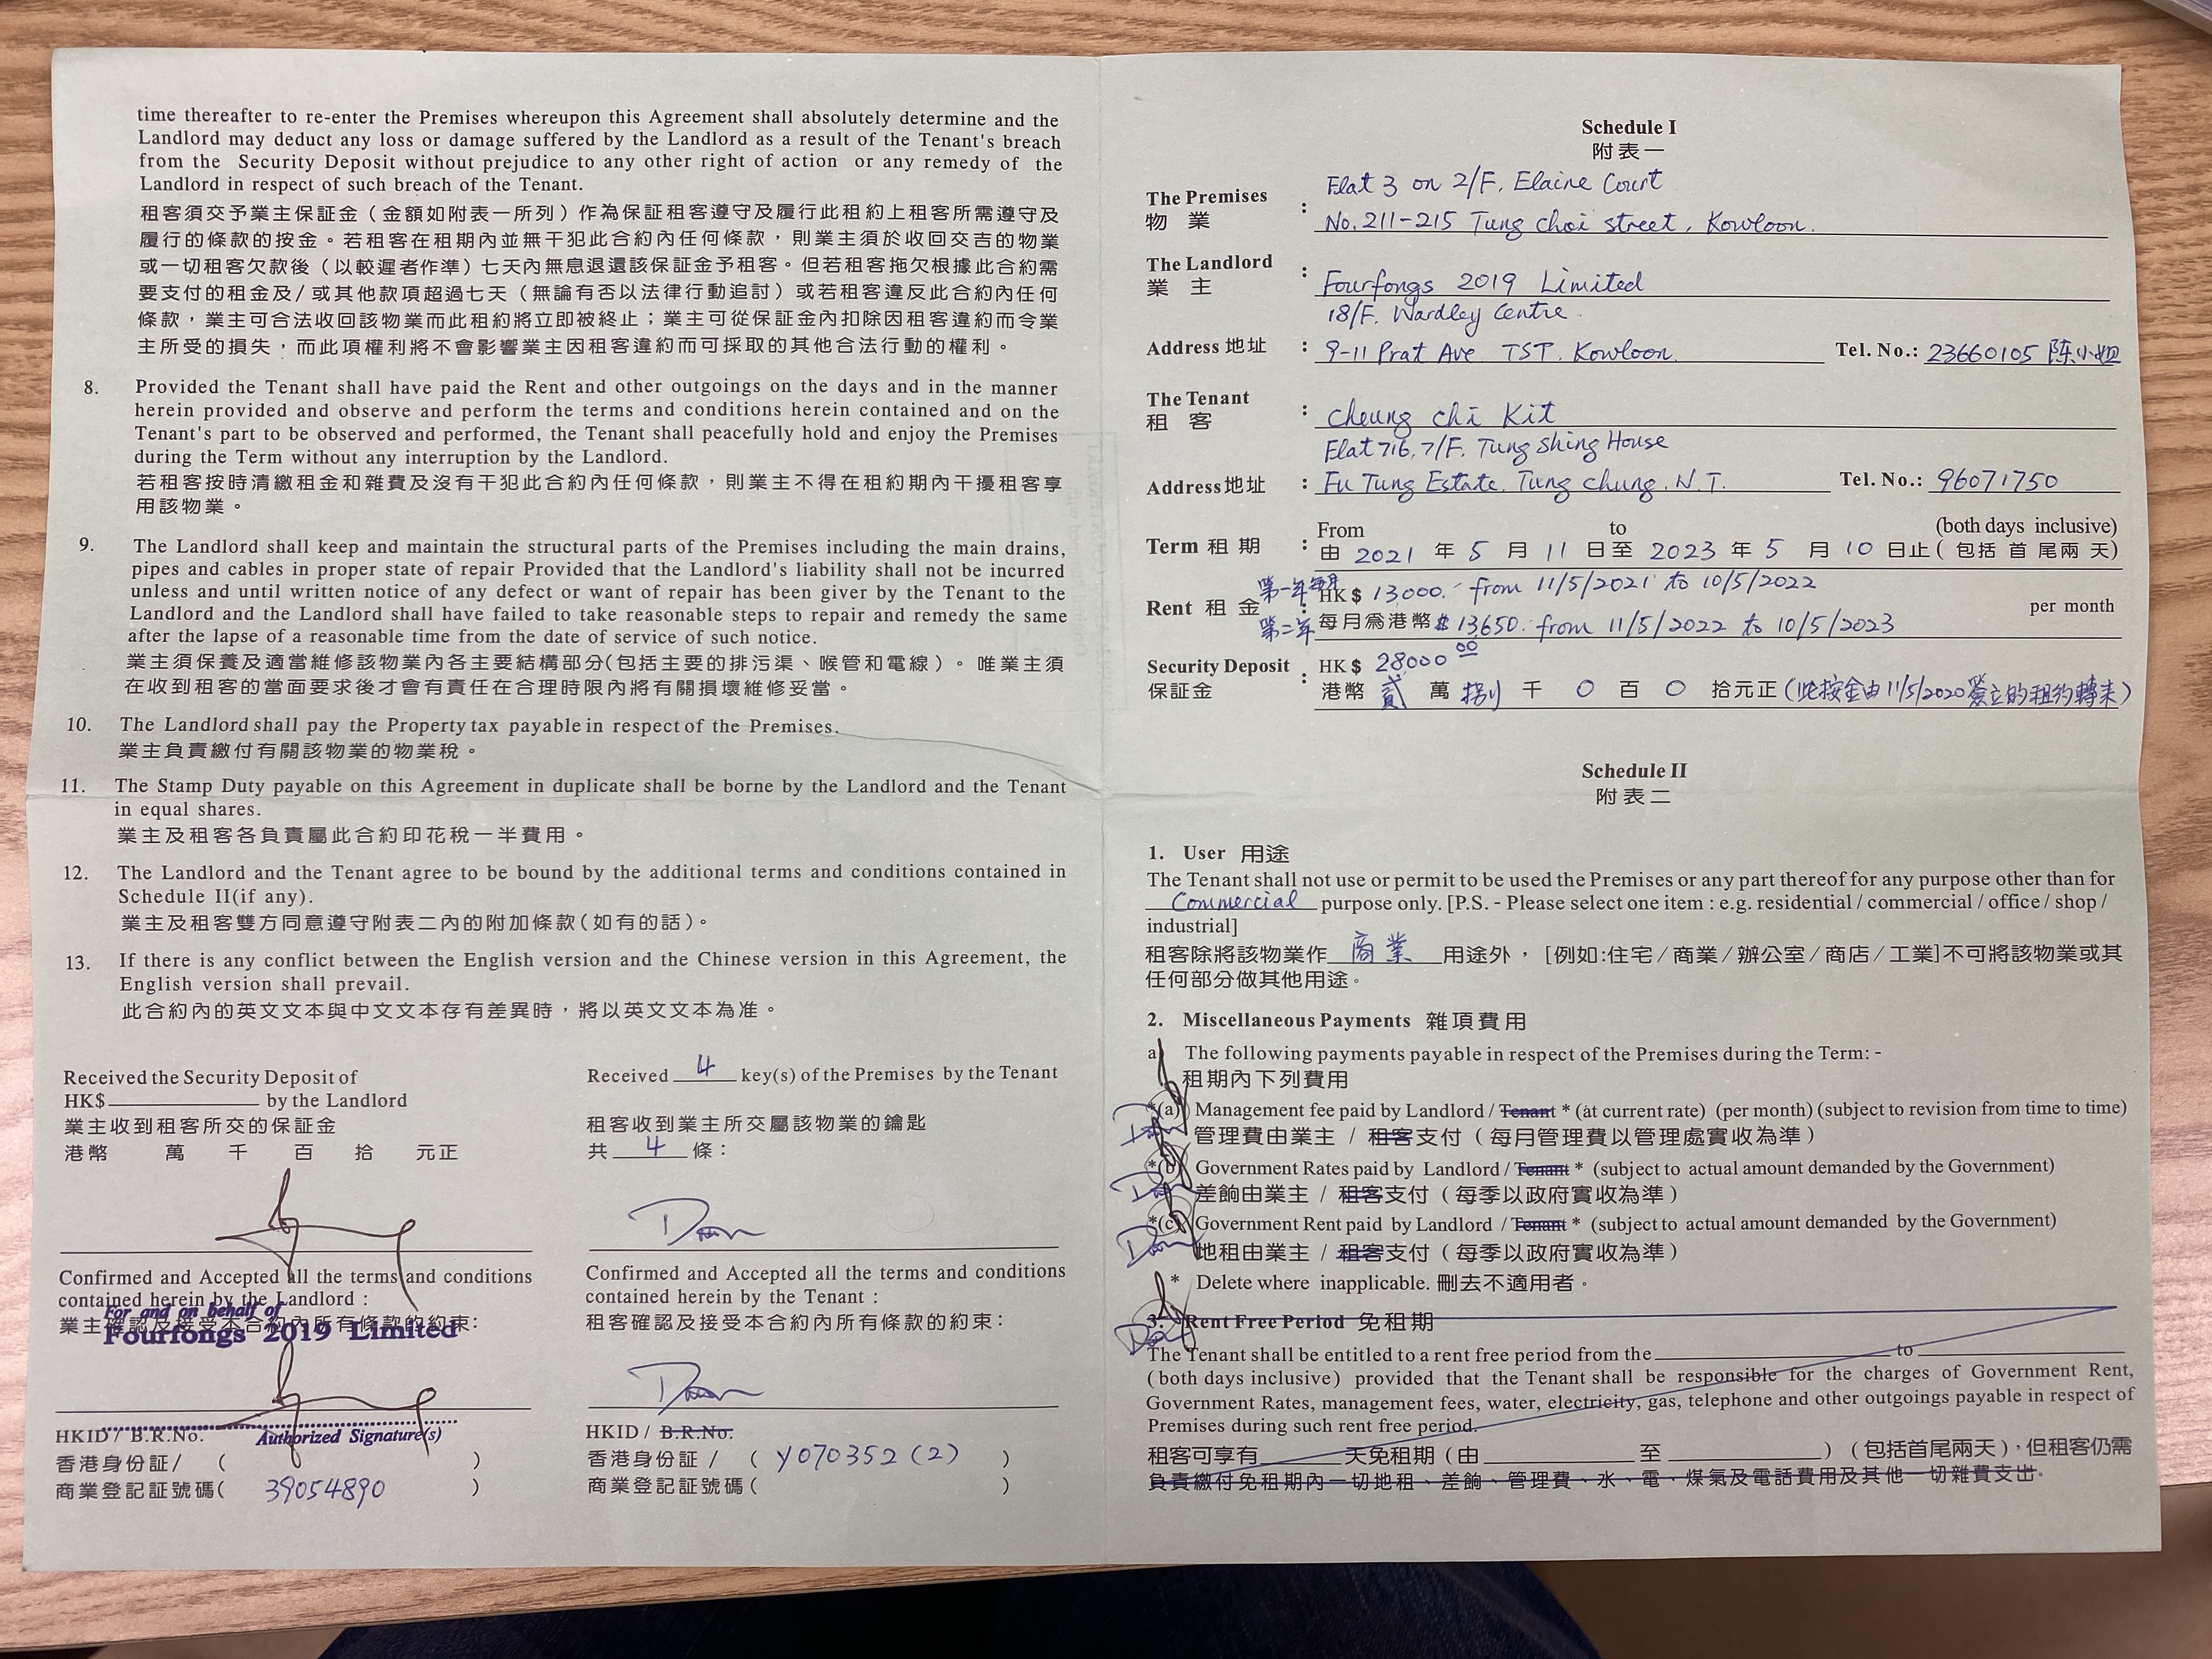 time thereafter to re-enter the Premises whereupon this Agreement shall absolutely determine and the
Landlord may deduct any loss or damage suffered by the Landlord as a result of the Tenant's breach
from the Security Deposit without prejudice to any other right of action or any remedy of the
Landlord in respect of such breach of the Tenant.
租客須交予業主保証金（金額如附表一所列）作為保証租客遵守及履行此租約上租客所需遵守及
履行的條款的按金。若租客在租期內並無干犯此合約內任何條款，則業主須於收回交吉的物業
或一切租客欠款後（以較遲者作準）七天內無息退還該保証金予租客。但若租客拖欠根據此合約需
要支付的租金及/或其他款項超過七天（無論有否以法律行動追討）或若租客違反此合約內任何
條款，業主可合法收回該物業而此租約將立即被終止；業主可從保証金內扣除因租客違約而令業
主所受的損失，而此項權利將不會影響業主因租客違約而可採取的其他合法行動的權利。
8. Provided the Tenant shall have paid the Rent and other outgoings on the days and in the manner
herein provided and observe and perform the terms and conditions herein contained and on the
Tenant's part to be observed and performed, the Tenant shall peacefully hold and enjoy the Premises
during the Term without any interruption by the Landlord.
若租客按時清繳租金和雜費及沒有干犯此合約內任何條款，則業主不得在租約期內干擾租客享
用該物業。
9. The Landlord shall keep and maintain the structural parts of the Premises including the main drains,
pipes and cables in proper state of repair Provided that the Landlord's liability shall not be incurred
unless and until written notice of any defect or want of repair has been giver by the Tenant to the
Landlord and the Landlord shall have failed to take reasonable steps to repair and remedy the same
after the lapse of a reasonable time from the date of service of such notice.
業主須保養及適當維修該物業內各主要結構部分(包括主要的排污渠、喉管和電線）。唯業主須
在收到租客的當面要求後才會有責任在合理時限內將有關損壞維修妥當。
10. The Landlord shall pay the Property tax payable in respect of the Premises.
業主負責繳付有關該物業的物業稅。
11. The Stamp Duty payable on this Agreement in duplicate shall be borne by the Landlord and the Tenant
in equal shares.
業主及租客各負責屬此合約印花稅一半費用。
12. The Landlord and the Tenant agree to be bound by the additional terms and conditions contained in
Schedule II(if any).
業主及租客雙方同意遵守附表二內的附加條款(如有的話)。
13. If there is any conflict between the English version and the Chinese version in this Agreement, the
English version shall prevail.
此合約內的英文文本與中文文本存有差異時，將以英文文本為准。
Received the Security Deposit of
HK$ by the Landlord
業主收到租客所交的保証金
港幣 萬 千 百 拾 元正
Confirmed and Accepted all the terms and conditions
contained herein by the Landlord :
業主確認及接受本合約內所有條款的約束:
For and on behalf of
Fourfongs 2019 Limited
Authorized Signature(s)
HKID / B.R.No.
香港身份証/ ( )
商業登記証號碼( 39054890 )
Received 4 key(s) of the Premises by the Tenant
租客收到業主所交屬該物業的鑰匙
共 4 條：
Confirmed and Accepted all the terms and conditions
contained herein by the Tenant :
租客確認及接受本合約內所有條款的約束:
HKID / B.R.No.
香港身份証 / ( Y070352 (2) )
商業登記証號碼( )
Schedule I
附表一
The Premises
物業 : Flat 3 on 2/F, Elaine Court
No.211-215 Tung Choi street, Kowloon.
The Landlord
業主 : Fourfongs 2019 Limited
18/F, Wardley Centre
Address 地址 : 9-11 Prat Ave TST. Kowloon. Tel. No.: 23660105 陈小姐
The Tenant
租客 : Cheung Chi Kit
Flat 716, 7/F. Tung Shing House
Address 地址 : Fu Tung Estate, Tung Chung, N.T. Tel. No.: 96071750
From to (both days inclusive)
Term 租期 : 由 2021 年 5 月 11 日至 2023 年 5 月 10 日止( 包括首尾兩天)
第一年每月 HK$ 13000. from 11/5/2021 to 10/5/2022
Rent 租金 : per month
第二年 每月為港幣$ 13650. from 11/5/2022 to 10/5/2023
Security Deposit : HK$ 28000 00
保証金 港幣 貳 萬 捌 千 0 百 0 拾元正 (此按金由11/5/2020簽立的租約轉来)
Schedule II
附表二
1. User 用途
The Tenant shall not use or permit to be used the Premises or any part thereof for any purpose other than for
Commercial purpose only. [P.S. - Please select one item : e.g. residential / commercial / office / shop /
industrial]
租客除將該物業作 商業 用途外，[例如:住宅/商業/辦公室/商店/工業]不可將該物業或其
任何部分做其他用途。
2. Miscellaneous Payments 雜項費用
a) The following payments payable in respect of the Premises during the Term: -
租期內下列費用
*(a) Management fee paid by Landlord / Tenant * (at current rate) (per month) (subject to revision from time to time)
管理費由業主 / 租客支付（每月管理費以管理處實收為準）
*(b) Government Rates paid by Landlord / Tenant * (subject to actual amount demanded by the Government)
差餉由業主 / 租客支付（每季以政府實收為準）
*(c) Government Rent paid by Landlord / Tenant * (subject to actual amount demanded by the Government)
地租由業主 / 租客支付（每季以政府實收為準）
* Delete where inapplicable. 刪去不適用者。
3. Rent Free Period 免租期
The Tenant shall be entitled to a rent free period from the to
(both days inclusive) provided that the Tenant shall be responsible for the charges of Government Rent,
Government Rates, management fees, water, electricity, gas, telephone and other outgoings payable in respect of
Premises during such rent free period.
租客可享有 天免租期（由 至 ）（包括首尾兩天），但租客仍需
負責繳付免租期內一切地租、差餉、管理費、水、電、煤氣及電話費用及其他一切雜費支出。